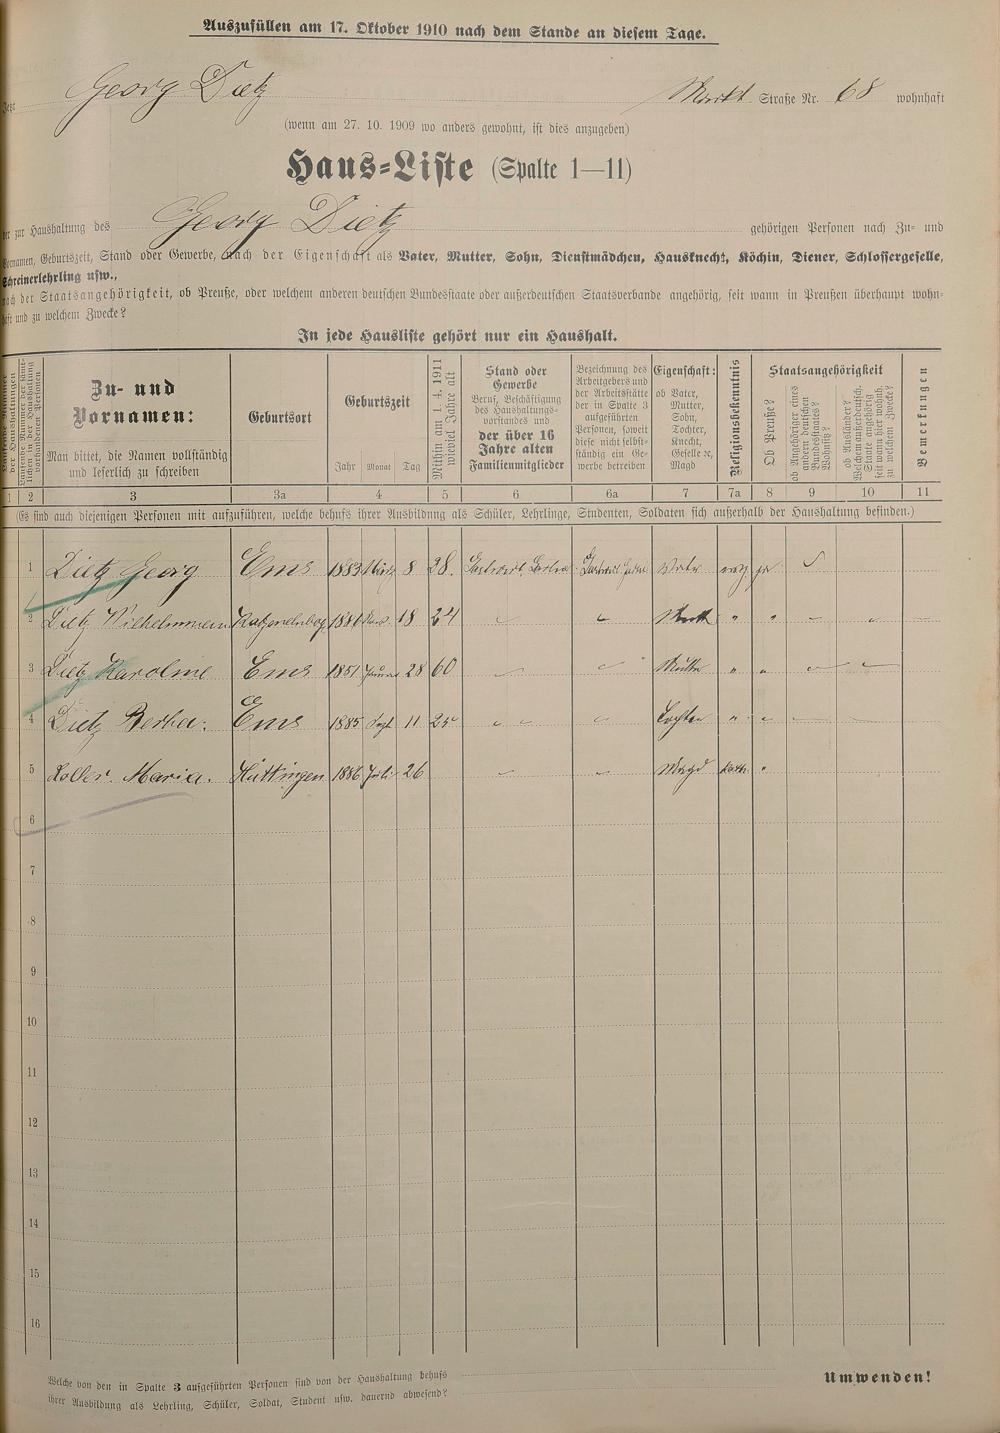 Auszufüllen am 17. Oktober 1910 nach dem Stande an diesem Tage.
Georg Dietz Markt Straße Nr. 68 wohnhaft
(wenn am 27. 10. 1909 wo anders gewohnt, ist dies anzugeben)
Haus=Liste (Spalte 1—11)
der zur Haushaltung des Georg Dietz gehörigen Personen nach Zu= und
Vornamen, Geburtszeit, Stand oder Gewerbe, nach der Eigenschaft als Vater, Mutter, Sohn, Dienstmädchen, Hausknecht, Köchin, Diener, Schlossergeselle,
Schreinerlehrling usw.,
nach der Staatsangehörigkeit, ob Preuße, oder welchem anderen deutschen Bundesstaate oder außerdeutschen Staatsverbande angehörig, seit wann in Preußen überhaupt wohn=
haft und zu welchem Zwecke?
In jede Hausliste gehört nur ein Haushalt.
der Haushaltungen
Laufende Nummer der sämt=
lichen in der Haushaltung
vorhandenen Personen
Zu= und
Vornamen:
Man bittet, die Namen vollständig
und leserlich zu schreiben
Geburtsort
Geburtszeit
Jahr Monat Tag
Mithin am 1. 4. 1911
wieviel Jahre alt
Stand oder
Gewerbe
Beruf, Beschäftigung
des Haushaltungs=
vorstandes und
der über 16
Jahre alten
Familienmitglieder
Bezeichnung des
Arbeitgebers und
der Arbeitsstätte
der in Spalte 3
aufgeführten
Personen, soweit
diese nicht selbst=
ständig ein Ge=
werbe betreiben
Eigenschaft:
ob Vater,
Mutter,
Sohn,
Tochter,
Knecht,
Geselle ꝛc,
Magd
Religionsbekenntnis
Staatsangehörigkeit
Ob Preuße?
ob Angehöriger eines
andern deutschen
Bundesstaates?
Wohnsitz?
ob Ausländer?
Welchem außerdeutsch.
Staate angehörig
seit wann hier wohnh.
zu welchem Zwecke?
Bemerkungen
1 2 3 3a 4 5 6 6a 7 7a 8 9 10 11
(Es sind auch diejenigen Personen mit aufzuführen, welche behufs ihrer Ausbildung als Schüler, Lehrlinge, Studenten, Soldaten sich außerhalb der Haushaltung befinden.)
1 Dietz Georg Ems 1883 März 8 28. Vater evg ja
2 Dietz Wilhelmine Katzenelnbog 18 24 " "
3 Dietz Karoline Ems 1851 Januar 28 60 Mutter " "
4 Dietz Berta. Ems 1885 Sept 11 25 Tochter " "
5 Koller Maria. Hüttingen 1886 Juli 26 Magd kath. "
6
7
8
9
10
11
12
13
14
15
16
Welche von den in Spalte 3 aufgeführten Personen sind von der Haushaltung behufs
ihrer Ausbildung als Lehrling, Schüler, Soldat, Student usw. dauernd abwesend?
Umwenden!